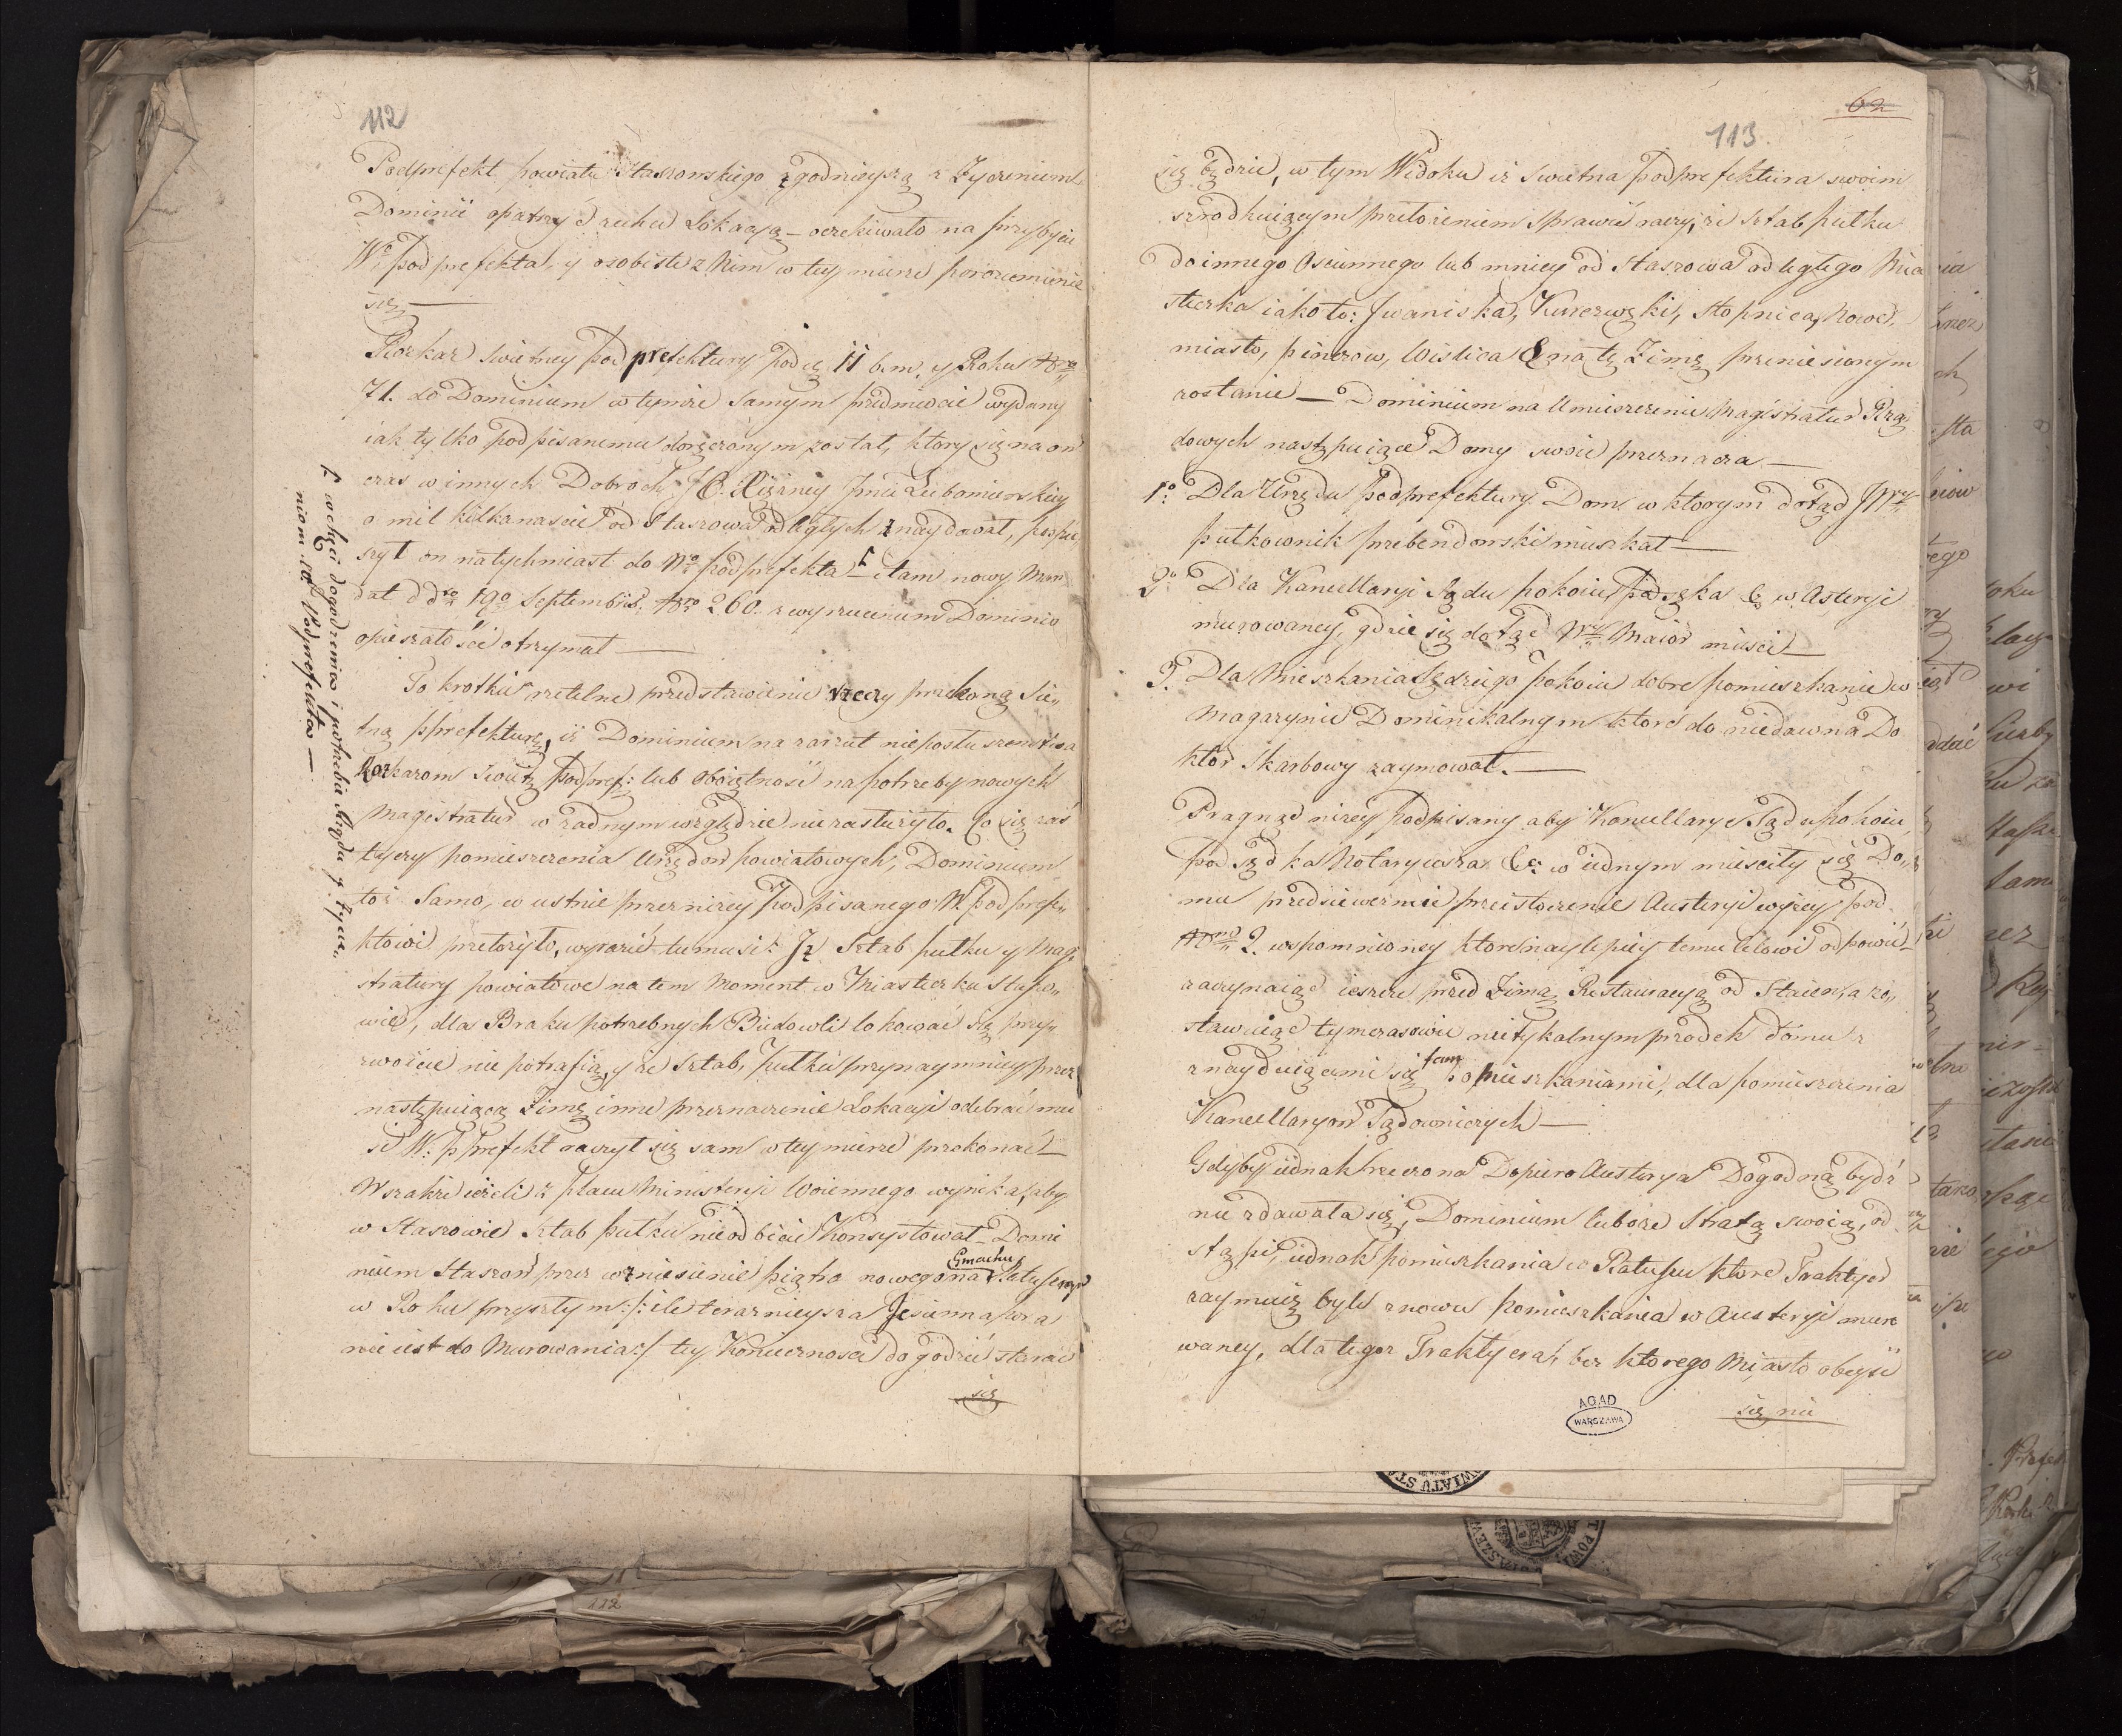 112
Podprefekt powiatu Staszowskiego zgodnieyszą z Życzeniem
Dominii opatrzyć zechce Lokacyą — oczekiwało na przybycie
Wo podprefekta, y osobiste z Nim w tey mierze porozumienie
się —
Rozkaz Swietney Podprefektury pod dą 11 b.m. y Roku Nro
71. do Dominium w tymże samym przedmiocie wydany
iak tylko podpisanemu doręczonym został, ktory się na on
czas w innych Dobrach JO. Xiężney Jmci Lubomirskiey
o mil kilkanaście od Staszowa odległych znaydował, pospie„
szył on natychmiast do Wo podprefekta Ⱶ i tam nowy Man
dat ddto 19o Septembris Nro 260. z wyrzuceniem Dominio
opieszałości otrzymał —
Ⱶ w chęci dogodzenia i potrzebie Rządu y życze„
niom Wo Podprefekta —
To krotkie rzetelne przedstawienie rzeczy przekona Swie„
tną pprefekturę, iż Dominium na zarzut nieposłuszeństwa
Rozkazom Swietą Podpref: lub oboiętność na potrzeby nowych
Magistratur w żadnym względzie nie zasłużyło. Co się zaś
tyczy pomieszczenia Urzędow powiatowych, Dominium
toż samo, co ustnie przez niżey Podpisanego W. podprefe„
ktowi przełożyło, wyrazić tu musi: Iż Sztab pułku y Magi
stratury powiatowe na ten Moment w Miasteczku Staszo„
wie, dla Braku potrzebnych Budowli lokować się przy„
zwoicie nie potrafią, y że Sztab Pułku przynaymniey przez
następuiącą Zimę inne przeznaczenie Lokacyi odebrać mu
si W. Pprefekt raczył się sam w tey mierze przekonać —
Wszakże ieżeli z planu Ministeryi Woiennego wynika, aby
w Staszowie Sztab Pułku nieodbicie Konsystował — Domi
nium Staszow przez wzniesienie piątra nowego na Gmachu Ratuszowym
w Roku przyszłym /: ile teraznieysza Jesienna pora
nie iest do Murowania :/ tey Konieczności dogodzić starać
się
62
113.
się będzie, w tym Widoku iż Swietna podprefektura swoim
szrodkuiącym przełożeniem sprawić raczy, że sztab pułku
do innego Ościennego lub mniey od Staszowa odległego Mia
steczka iako to: Iwaniska, Kurozwęki, Stopnica, Nowe
miasto, pinczow, Wislica &c na tę Zimę przeniesionym
zostanie — Dominium na Umieszczenie Magistratur Rzą„
dowych następuiące Domy swoie przeznacza —
1o Dla Urzędu podprefektury Dom w ktorym dotąd JWy
pułkownik przebendowski mieszkał —
2o Dla Kancellaryi Sądu pokoiu, Podsędka &c w Austeryi
murowaney, gdzie się dotąd Wy Maior mieści —
3. Dla Mieszkania Sędziego Pokoiu dobre pomieszkanie w
Magazynie Dominikalnym ktore do niedawna Do
ktor Skarbowy zaymował. —
Pragnąc niżey podpisany aby Kancellarye Sądu pokoiu,
podsędka Notaryusza &c: w iednym mieściły się Do„
mu przedsiewezmie przeistoczenie Austeryi wyżey pod
Nrm 2. wspomnioney ktore naylepiey temu celowi odpowie —
zaczynaiąc ieszcze przed Zimą Restauracyą od Staien, a zo„
stawuiąc tymczasowie nietykalnym przodek domu z
znayduiącemi się tam pomieszkaniami, dla pomieszczenia
Kancellaryow Sądowniczych —
Gdyby iednak rzeczona Dopiero Austerya Dogodną bydź
nie zdawała się, Dominium lubo ze Stratą swoią, od
stąpi iednak pomieszkania w Ratuszu ktore Traktyer
zaymuie, byle znowu pomieszkania w Austeryi muro
waney, dla tegoż Traktyera, bez ktorego Miasto obeyść
się nie
AGAD
WARSZAWA
112